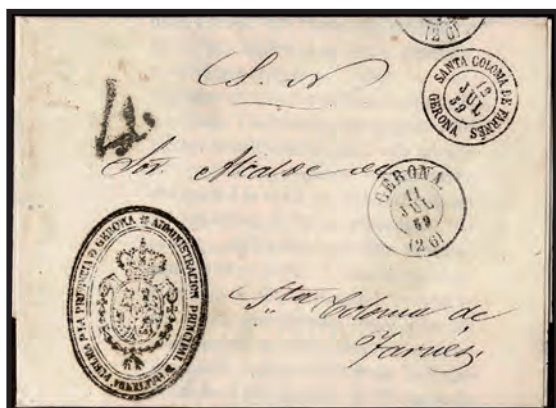 (2 G)
S. N
SANTA COLOMA DE FARNÉS
12
JUL
59
GERONA
4.
Sor. Alcalde de
GERONA.
11
JUL
59
(2 G)
ADMINISTRACION PRINCIPAL D HACIENDA PUBLICA D LA PROVINCIA D GERONA
Sta Coloma de
Farnés,